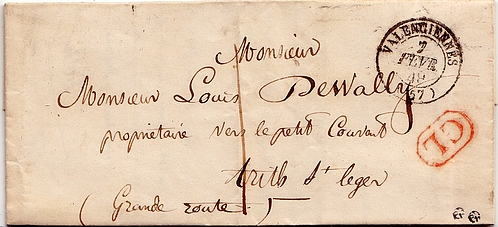 Monsieur
Monsieur Louis Dewally
propriétaire vers le petit Couvant
Arith St leger
(Grande route)
VALENCIENNES
2
FEVR
49
(57)
CL